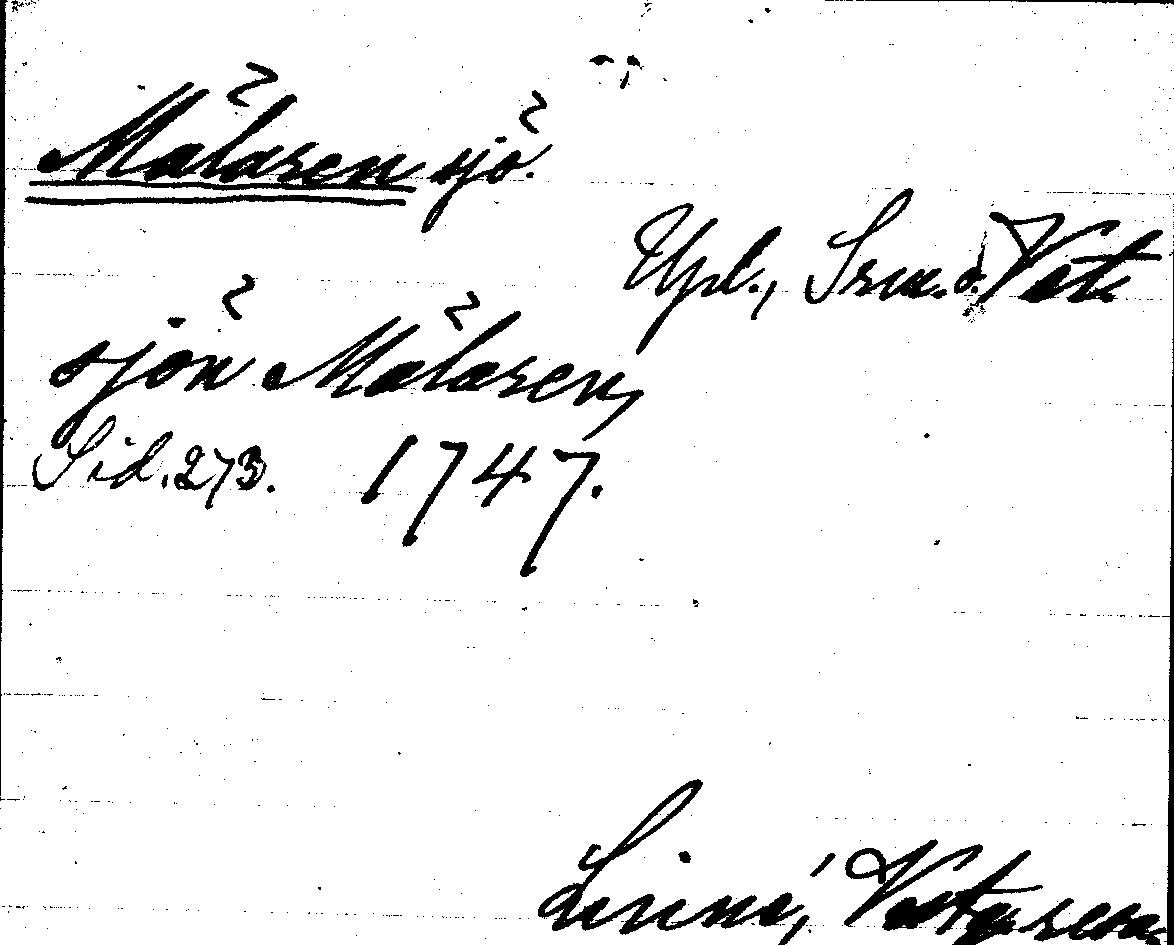 Mälaren sjö.
Upl., Srm. o. Vstm
sjön Mälaren,
Sid. 273. 1747.
Linné, Vestg. resa